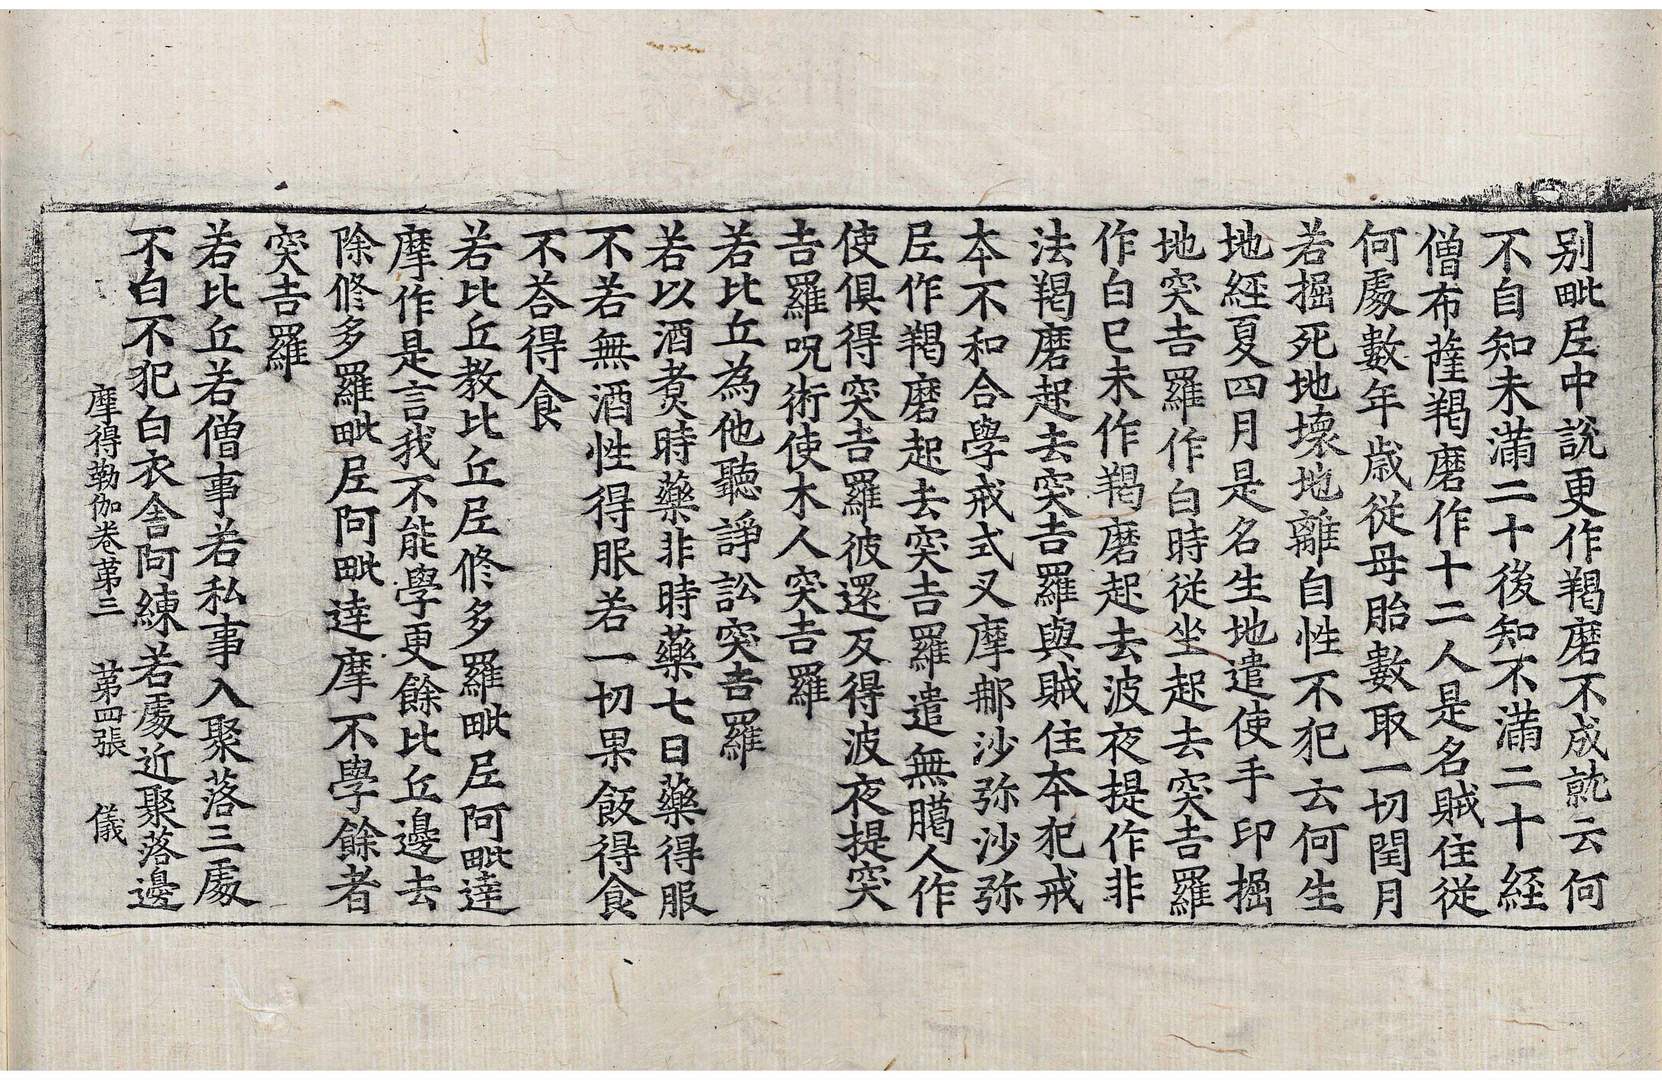 别毗尼中說更作羯磨不成就云何
不自知未滿二十後知不滿二十經
僧布薩羯磨作十二人是名賊住從
何處數年歲從母胎數取一切閏月
若掘死地壞地離自性不犯云何生
地經夏四月是名生地遣使手印掘
地突吉羅作白時從坐起去突吉羅
作白已未作羯磨起去波夜提作非
法羯磨起去突吉羅與賊住本犯戒
本不和合學戒式叉摩那沙弥沙弥
尼作羯磨起去突吉羅遣無臈人作
使俱得突吉羅彼還反得波夜提突
吉羅呪術使木人突吉羅
若比丘為他聽諍訟突吉羅
若以酒煮時藥非時藥七日藥得服
不若無酒性得服若一切果飯得食
不荅得食
若比丘教比丘尼修多羅毗尼阿毗達
摩作是言我不能學更餘比丘邊去
除修多羅毗尼阿毗達摩不學餘者
突吉羅
若比丘若僧事若私事入聚落三處
不白不犯白衣舍阿練若處近聚落邊
摩得勒伽卷第三　第四張　儀